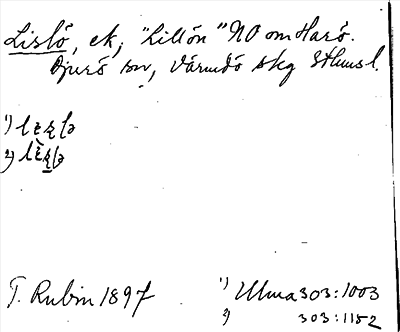 Lislö, ek, "Lillön" NO om Harö.
Djurö sn, Värmdö skg Sthmsl.
1)
2)
T. Rubin 1897
1) Ulma 303:1003
2) 303:1152